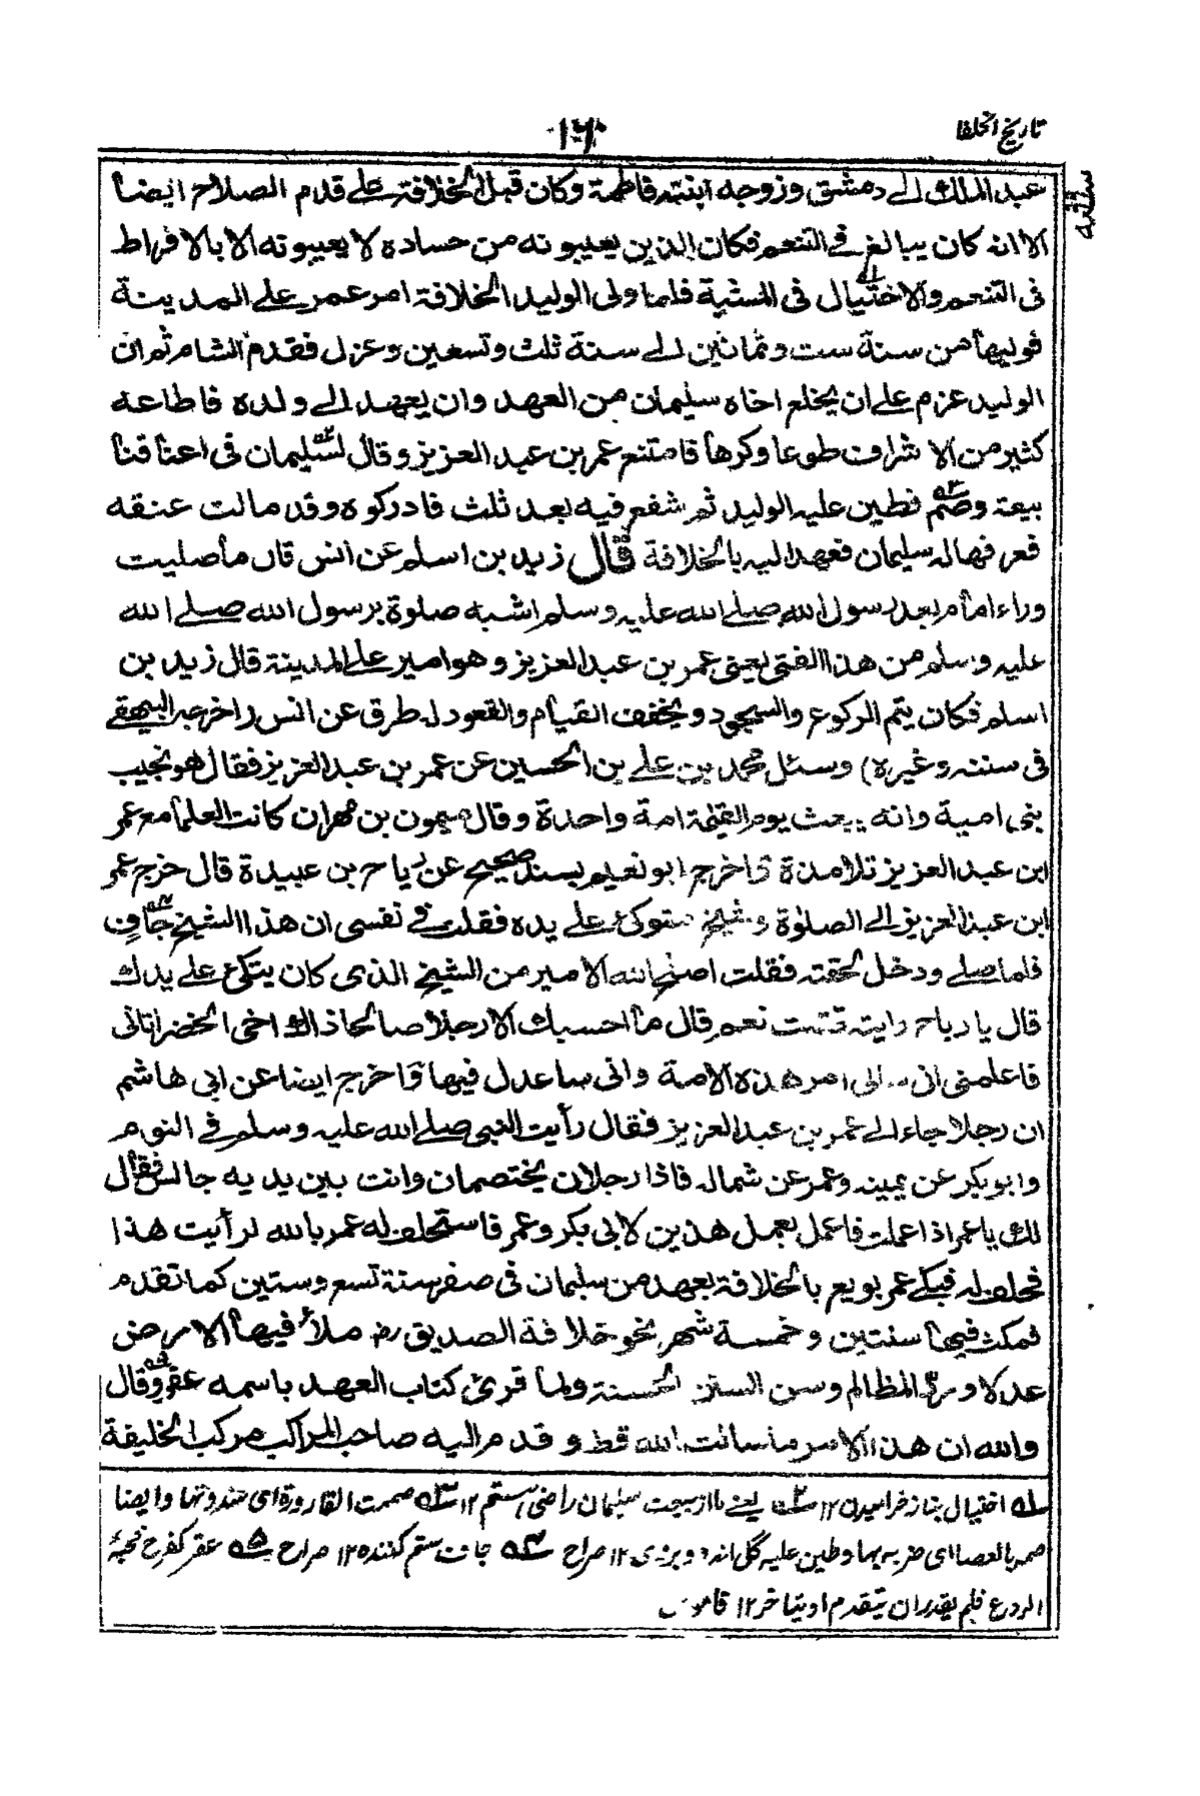 تاريخ الخلفا
١٦٠
عبد الملك الے دمشق وزوجه ابنته فاطمة وكان قبل الخلافة علے قدم الصلاح ايضا
الا انه كان يبالغ فے التنعم فكان الذين يعيبونه من حساده لا يعيبونه الا بالافراط
فى التنعم والاختيال فى المشية فلما ولى الوليد الخلافة امر عمر علے المدينة
فوليها من سنة ست وثمانين الے سنة ثلث وتسعين وعزل فقدم الشام ثم ان
الوليد عزم علے ان يخلع اخاه سليمان من العهد وان يعهد الے ولده فاطاعه
كثير من الاشراف طوعا وكرها فامتنع عمر بن عبد العزيز وقال لسليمان فى اعناقنا
بيعة وصمم فطين عليه الوليد ثم شفع فيه بعد ثلث فادركوه وقد مالت عنقه
فعرفها له سليمان فعهد اليه بالخلافة قال زيد بن اسلم عن انس قال ما صليت
وراء امام بعد رسول الله صلے الله عليه وسلم اشبه صلوة برسول الله صلے الله
عليه وسلم من هذا الفتى يعنى عمر بن عبد العزيز وهو امير علے المدينة قال زيد بن
اسلم فكان يتم الركوع والسجود ويخفف القيام والقعود له طرق عن انس (اخرجه البيهقے
فى سننه وغيره) وسئل محمد بن علے بن الحسين عن عمر بن عبد العزيز فقال هو نجيب
بنى امية وانه يبعث يوم القيمة امة واحدة وقال ميمون بن مهران كانت العلما مع عمر
ابن عبد العزيز تلامذة واخرج ابو نعيم بسند صحيح عن رياح بن عبيدة قال خرج عمر
ابن عبد العزيز الے الصلوة وشيخ متوكئ علے يده فقلت فے نفسى ان هذا الشيخ جاف
فلما صلے ودخل لحقته فقلت اصلح الله الامير من الشيخ الذى كان يتكئ علے يدك
قال يا رياح رايته قلت نعم قال ما احسبك الا رجلا صالحا ذاك اخى الخضر اتانى
فاعلمنى انى سالى امر هذه الامة وانى ساعدل فيها واخرج ايضا عن ابى هاشم
ان رجلا جاء الے عمر بن عبد العزيز فقال رأيت النبى صلے الله عليه وسلم فے النوم
وابو بكر عن يمينه وعمر عن شماله فاذا رجلان يختصمان وانت بين يديه جالس فقال
لك يا عمر اذا عملت فاعمل بعمل هذين لابى بكر وعمر فاستحلف له عمر بالله لرأيت هذا
فحلف له فبكے عمر بويع بالخلافة بعهد من سليمان فى صفر سنة تسع وستين كما تقدم
فمكث فيها سنتين وخمسة شهر نحو خلافة الصديق رض ملأ فيها الارض
عدلا ورد المظالم وسن السنن الحسنة ولما قرئ كتاب العهد باسمه عقر وقال
والله ان هذا الامر ما سالت الله قط وقدم اليه صاحب المراكب مركب الخليفة
له اختيال بناز خراميدن ١٢ ٢ه يعنے ما از بيعت سليمان راضى استيم ١٢ ٣ه صممت القارورة اى سددتها وايضا
صمه بالعصا اى ضربه بها وطين عليه گل اندود بروى ١٢ صراح ٤ه جاف ستم كننده ١٢ صراح ٥ه عقر كفرح فجئه
الروع فلم يقدر ان يتقدم او يتاخر ١٢ قاموس